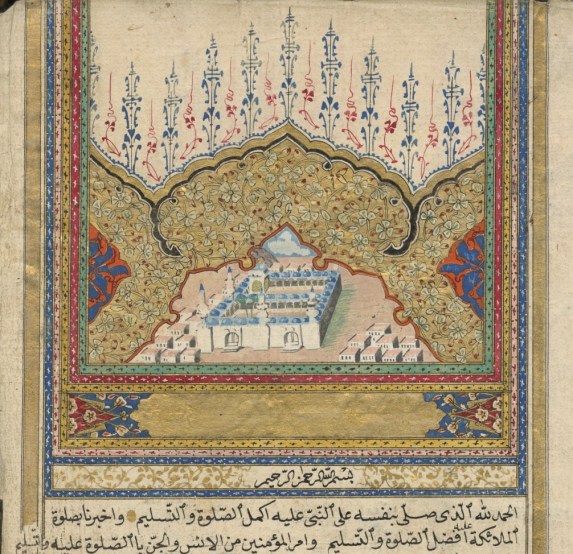 بسم الله الرحمن الرحيم
الحمد لله الذى صلى بنفسه على النبى عليه اكمل الصلوة والتسليم واخبرنا بصلوة
الملائكة عليه افضل الصلوة والتسليم وامر المؤمنين من الانس والجن بالصلوة عليه والتسليم